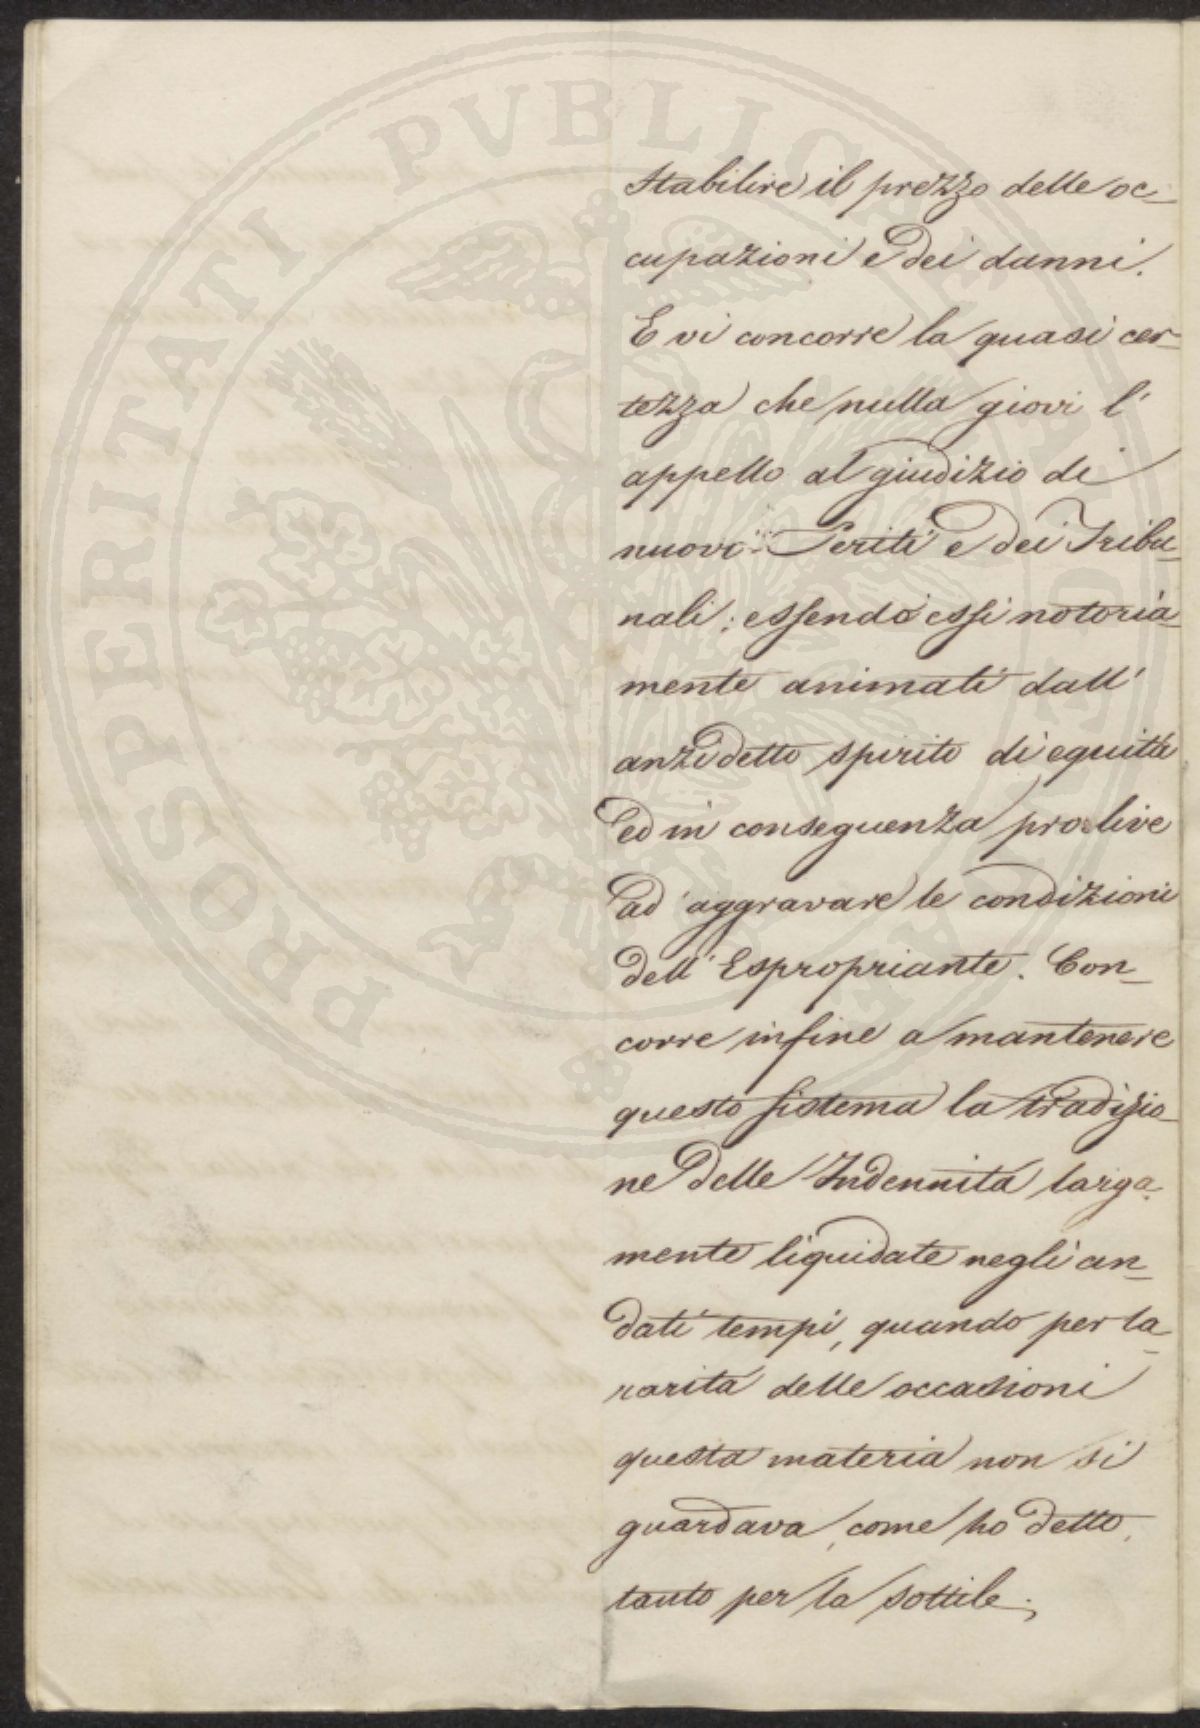 Stabilire il prezzo delle oc-
cupazioni e dei danni.
E vi concorre la quasi cer-
tezza che nulla giovi l'
appello al giudizio di
nuovi Periti e dei Tribu-
nali; essendo essi notoria-
mente animati dall'
anzidetto spirito di equità
ed in conseguenza proclive
ad aggravare le condizioni
dell'Espropriante. Con-
corre infine a mantenere
questo sistema la tradizio-
ne delle Indennità larga-
mente liquidate negli an-
dati tempi, quando per la
rarità delle occasioni
questa materia non si
guardava, come ho detto,
tanto per la sottile;
PROSPERITATI PVBLICAE